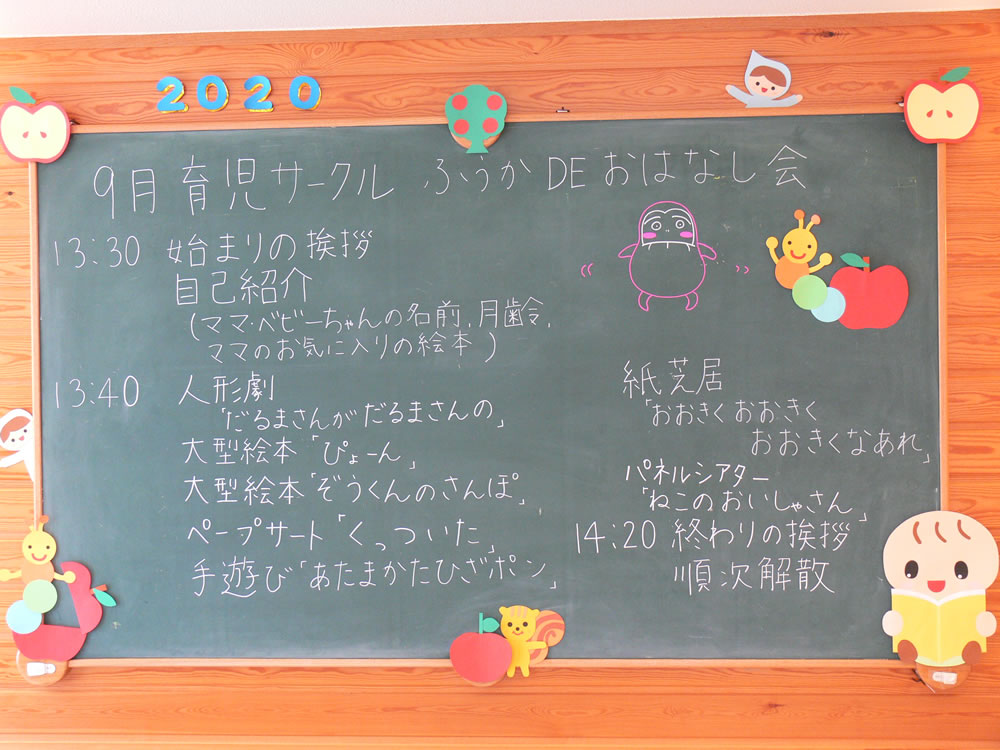 2020
9月 育児サークル ふうか DE おはなし会
13:30 始まりの挨拶
自己紹介
(ママ・ベビーちゃんの名前、月齢、
ママのお気に入りの絵本)
13:40 人形劇
「だるまさんがだるまさんの」
大型絵本「ぴょーん」
大型絵本「ぞうくんのさんぽ」
ペープサート「くっついた」
手遊び「あたまかたひざポン」
紙芝居
「おおきくおおきく
おおきくなあれ」
パネルシアター
「ねこのおいしゃさん」
14:20 終わりの挨拶
順次解散